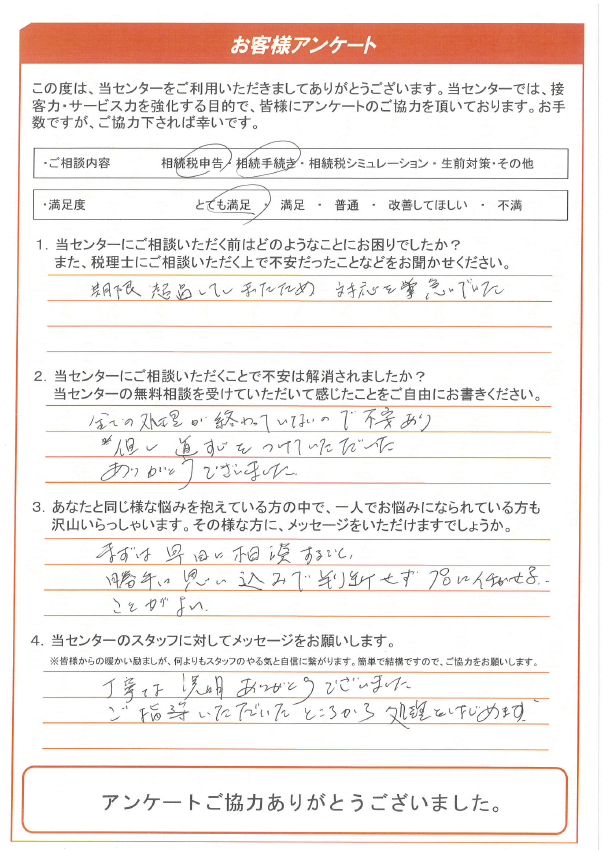 お客様アンケート
この度は、当センターをご利用いただきましてありがとうございます。当センターでは、接
客力・サービス力を強化する目的で、皆様にアンケートのご協力を頂いております。お手
数ですが、ご協力下されば幸いです。
・ご相談内容 相続税申告・相続手続き・相続税シミュレーション・生前対策・その他
・満足度 とても満足 ・ 満足 ・ 普通 ・ 改善してほしい ・ 不満
1. 当センターにご相談いただく前はどのようなことにお困りでしたか?
また、税理士にご相談いただく上で不安だったことなどをお聞かせください。
期限 超過していたため 対応を 急いでいた
2. 当センターにご相談いただくことで不安は解消されましたか?
当センターの無料相談を受けていただいて感じたことをご自由にお書きください。
全ての処理が終わっていないので不安あり
*但し 道すじをつけていただいた
ありがとうございました
3. あなたと同じ様な悩みを抱えている方の中で、一人でお悩みになられている方も
沢山いらっしゃいます。その様な方に、メッセージをいただけますでしょうか。
まずは早目に相談すること。
勝手に思い込みで判断せず プロに任せる
ことがよい.
4. 当センターのスタッフに対してメッセージをお願いします。
※皆様からの暖かい励ましが、何よりもスタッフのやる気と自信に繋がります。簡単で結構ですので、ご協力をお願いします。
丁寧な説明ありがとうございました
ご指導いただいたところから処理をはじめます
アンケートご協力ありがとうございました。